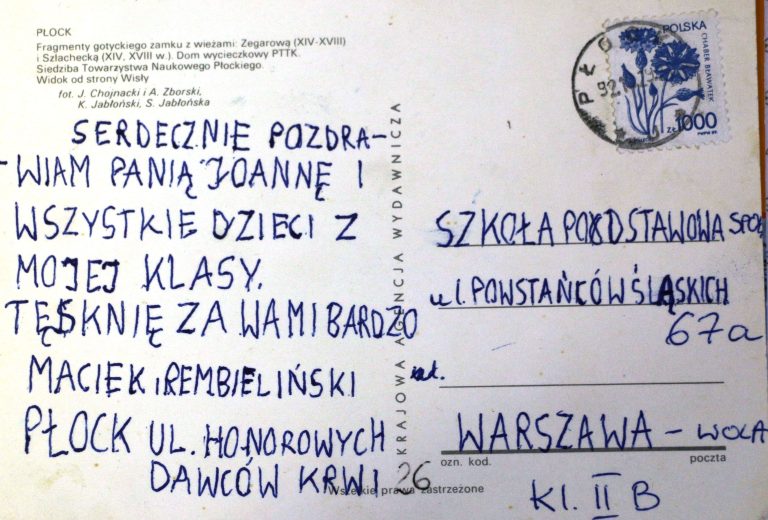 PŁOCK
Fragmenty gotyckiego zamku z wieżami: Zegarową (XIV-XVIII)
i Szlachecką (XIV, XVIII w.). Dom wycieczkowy PTTK.
Siedziba Towarzystwa Naukowego Płockiego.
Widok od strony Wisły
fot. J. Chojnacki i A. Zborski,
K. Jabłoński, S. Jabłońska
SERDECZNIE POZDRA-
-WIAM PANIĄ JOANNĘ I
WSZYSTKIE DZIECI Z
MOJEJ KLASY.
TĘSKNIĘ ZA WAMI BARDZO
MACIEK REMBIELIŃSKI
PŁOCK UL. HONOROWYCH
DAWCÓW KRWI 26
KRAJOWA AGENCJA WYDAWNICZA
Wszelkie prawa zastrzeżone
PŁOCK
92
POLSKA
CHABER BŁAWATEK
ZŁ 1000
SZKOŁA PODSTAWOWA SPOŁ
ul. POWSTAŃCÓW ŚLĄSKICH
67a
WARSZAWA - WOLA
ozn. kod. poczta
Kl. II B